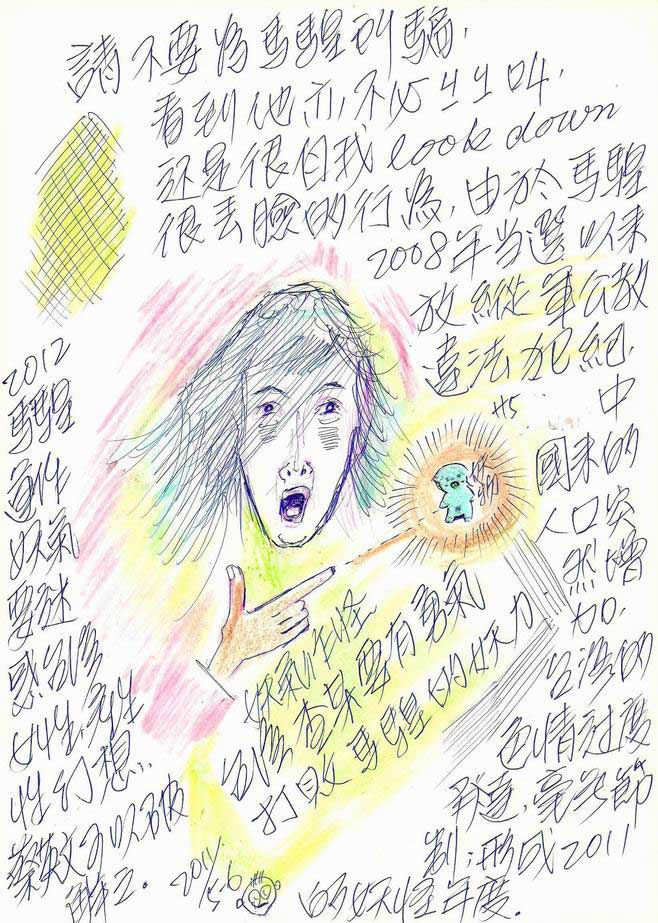 請不要為馬騜到騙,
看到他亦不必叫,
还是很自我 look down
很丟臉的行為,由於馬騜
2008年当選以來
放縱軍公教
違法犯紀,
#5
中
國來的
人口突
然增
加,
台灣的
色情过度
發達,毫无節
制,形成2011
的妖怪年度.
2012
馬騜
妖氣
要迷
惑台灣
女生,產生
性幻想.
蔡英文可以破
解之.
妖氣作怪
台灣查某要有勇氣
打敗馬騜的妖力.
2011
5-6